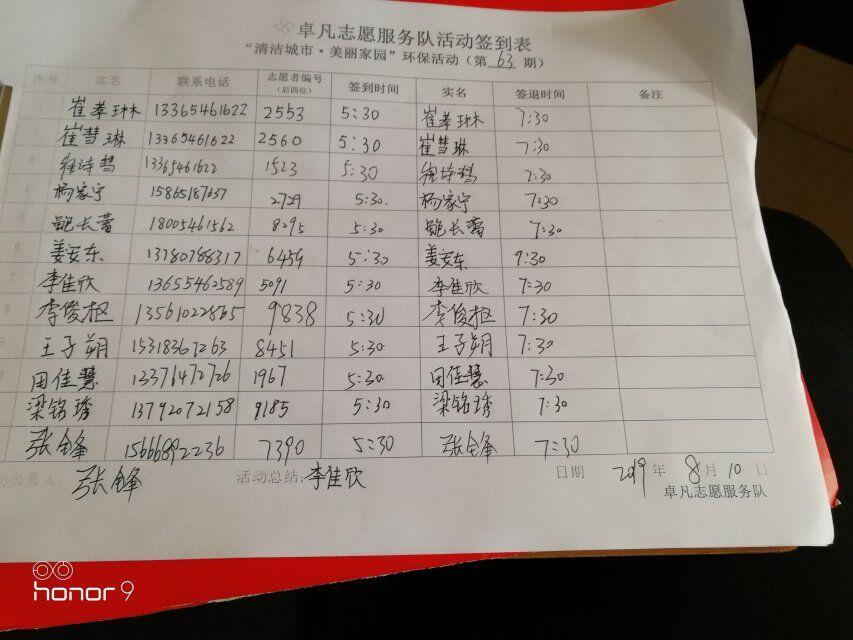 卓凡志愿服务队活动签到表
“清洁城市·美丽家园”环保活动（第 63 期）
序号 实名 联系电话 志愿者编号（后四位） 签到时间 实名 签退时间 备注
崔孝琳 13365461622 2553 5:30 崔孝琳 7:30
崔慧琳 13365461622 2560 5:30 崔慧琳 7:30
3 徐诗慧 13365461622 1523 5:30 徐诗慧 7:30
杨家宁 15865187637 2729 5:30. 杨家宁 7:30
5 鲍长蕾 18005461562 8295 5:30 鲍长蕾 7:30
6 姜安东 13780788317 6459 5:30 姜安东 9:30
7 李佳欣 13655462589 5091 5:30 李佳欣 7:30
8 李俊枢 13561022865 9838 5:30 李俊枢 7:30
9 王子朔 15318367263 8451 5:30 王子朔 7:30
田佳慧 13371472726 1967 5:30 田佳慧 7:30
梁铭琇 13792072158 9185 5:30 梁铭琇 7:30
张锋 15666892236 7390 5:30 张锋 7:30
负责人：张锋 活动总结：李佳欣 日期 2019 年 8 月 10 日
卓凡志愿服务队
honor 9